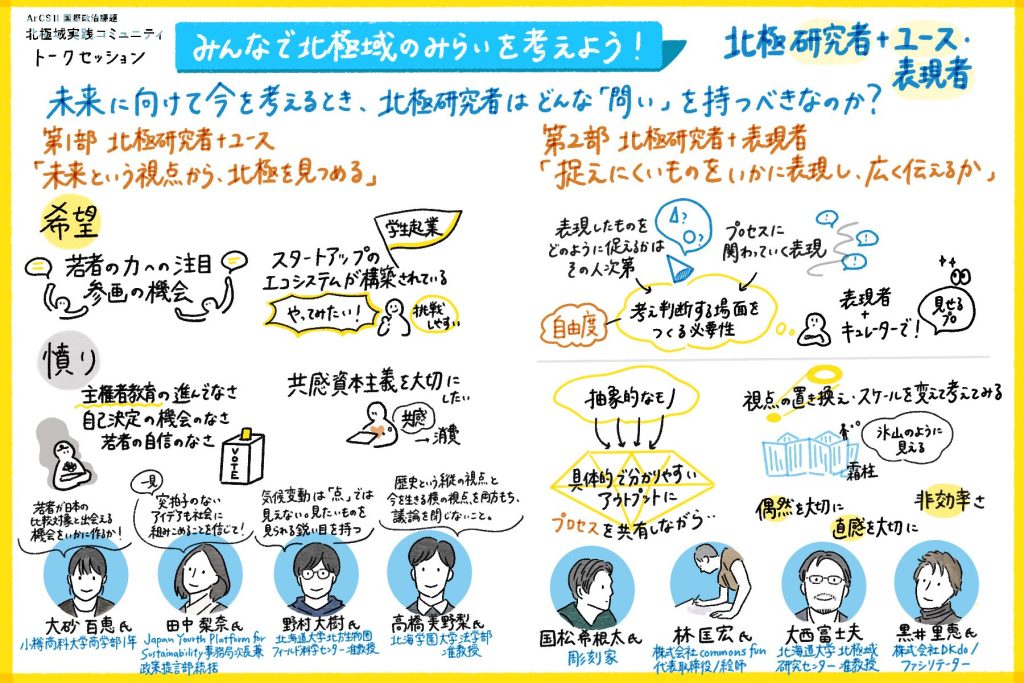 ArCSII 国際政治課題
北極域実践コミュニティ
トークセッション
みんなで北極域のみらいを考えよう!
北極研究者+ユース・
表現者
未来に向けて今を考えるとき、北極研究者はどんな「問い」を持つべきなのか?
第1部 北極研究者+ユース
「未来という視点から、北極を見つめる」
希望
若者の力への注目
参画の機会
学生起業
スタートアップの
エコシステムが構築されている
やってみたい!
挑戦
しやすい
憤り
主権者教育の進んでなさ
自己決定の機会のなさ
若者の自信のなさ
VOTE
共感資本主義を大切に
したい
共感
→消費
若者が日本の
比較対象と出会える
機会をいかに作るか!
一見
突拍子のない
アイデアも社会に
組みこめることを信じて!
気候変動は「点」では
見えない。見たいものを
見られる鋭い目を持つ
歴史という縦の視点と
今を生きる横の視点を両方もち、
議論を閉じないこと。
大砂 百恵氏
小樽商科大学商学部1年
田中 梨奈氏
Japan Youth Platform for
Sustainability事務局次長兼
政策提言部統括
野村 大樹氏
北海道大学北方生物圏
フィールド科学センター 准教授
高橋 美野梨氏
北海学園大学法学部
准教授
第2部 北極研究者+表現者
「捉えにくいものをいかに表現し、広く伝えるか」
表現したものを
どのように捉えるかは
その人次第
プロセスに
関わっていく表現
自由度
考え判断する場面を
つくる必要性
表現者
+
キュレーターで!
見せる
プロ
抽象的なモノ
具体的で分かりやすい
アウトプットに
プロセスを共有しながら…
視点の置き換え・スケールを変えて考えてみる
氷山のように
見える
霜柱
偶然を大切に
直感を大切に
非効率さ
国松 希根太氏
彫刻家
林 匡宏氏
株式会社commons fun
代表取締役/絵師
大西 富士夫氏
北海道大学 北極域
研究センター 准教授
黒井 里恵氏
株式会社DKdo/
ファシリテーター